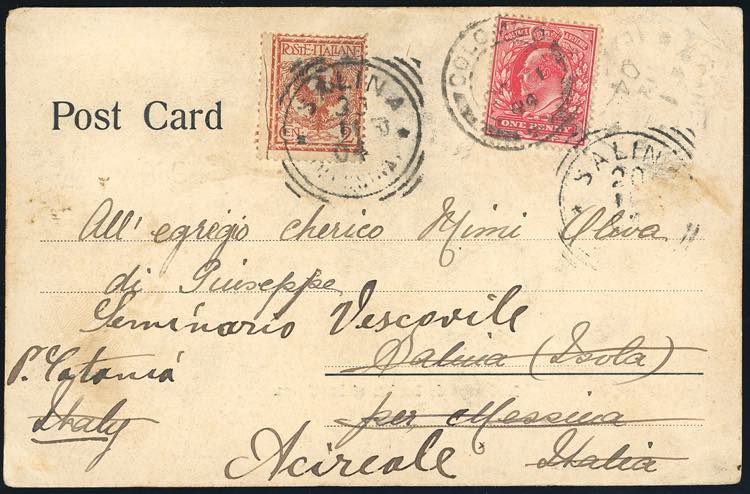 Post Card
POSTE·ITALIANE
SALINA
04
COLO
POSTAGE REVENUE
ONE PENNY
SALINA
20
All' egregio cherico Mimi Oliva
di Giuseppe
Seminario Vescovile
Salina (Isola)
P. Catania
per Messina
Italy
Acireale Italia